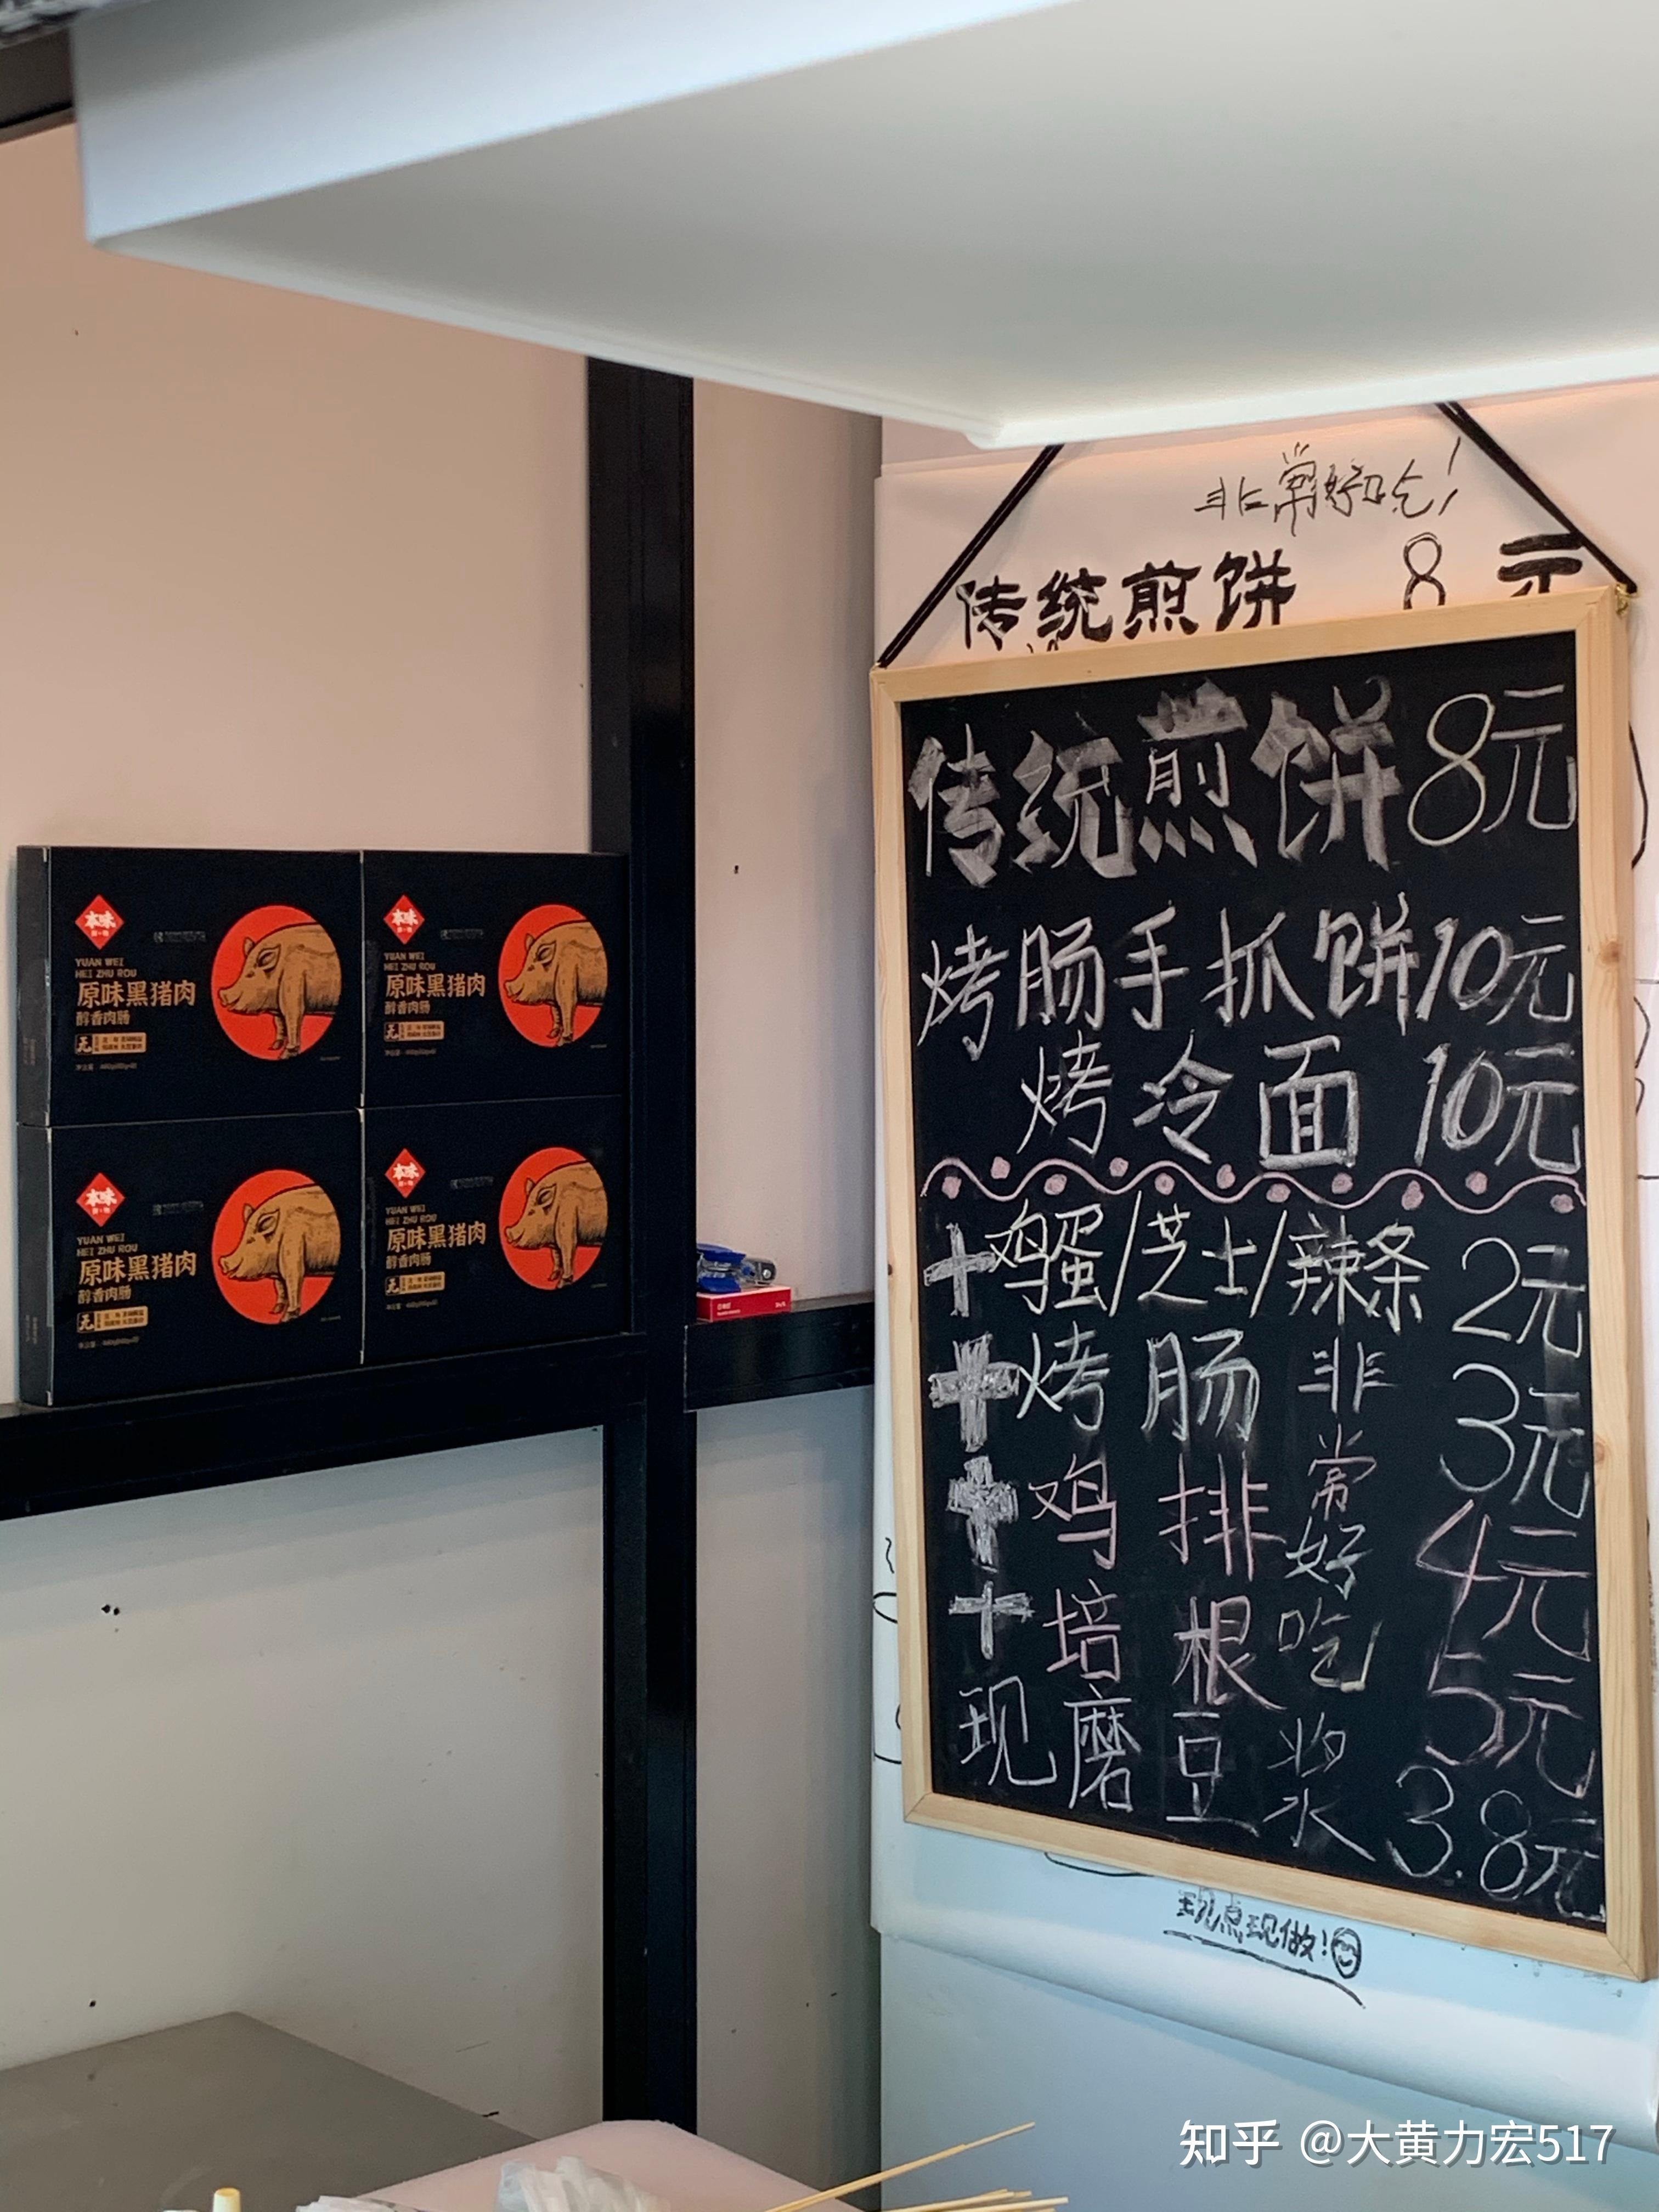 非常好吃!
传统煎饼 8元
传统煎饼8元
烤肠手抓饼10元
烤冷面 10元
+鸡蛋/芝士/辣条 2元
+烤肠 3元
+鸡排 4元
+培根 5元
非常好吃
现磨豆浆 3.8元
现点现做!
本味
YUAN WEI
HEI ZHU ROU
原味黑猪肉
醇香肉肠
无
本味
YUAN WEI
HEI ZHU ROU
原味黑猪肉
醇香肉肠
无
本味
YUAN WEI
HEI ZHU ROU
原味黑猪肉
醇香肉肠
无
本味
YUAN WEI
HEI ZHU ROU
原味黑猪肉
醇香肉肠
无
知乎 @大黄力宏517